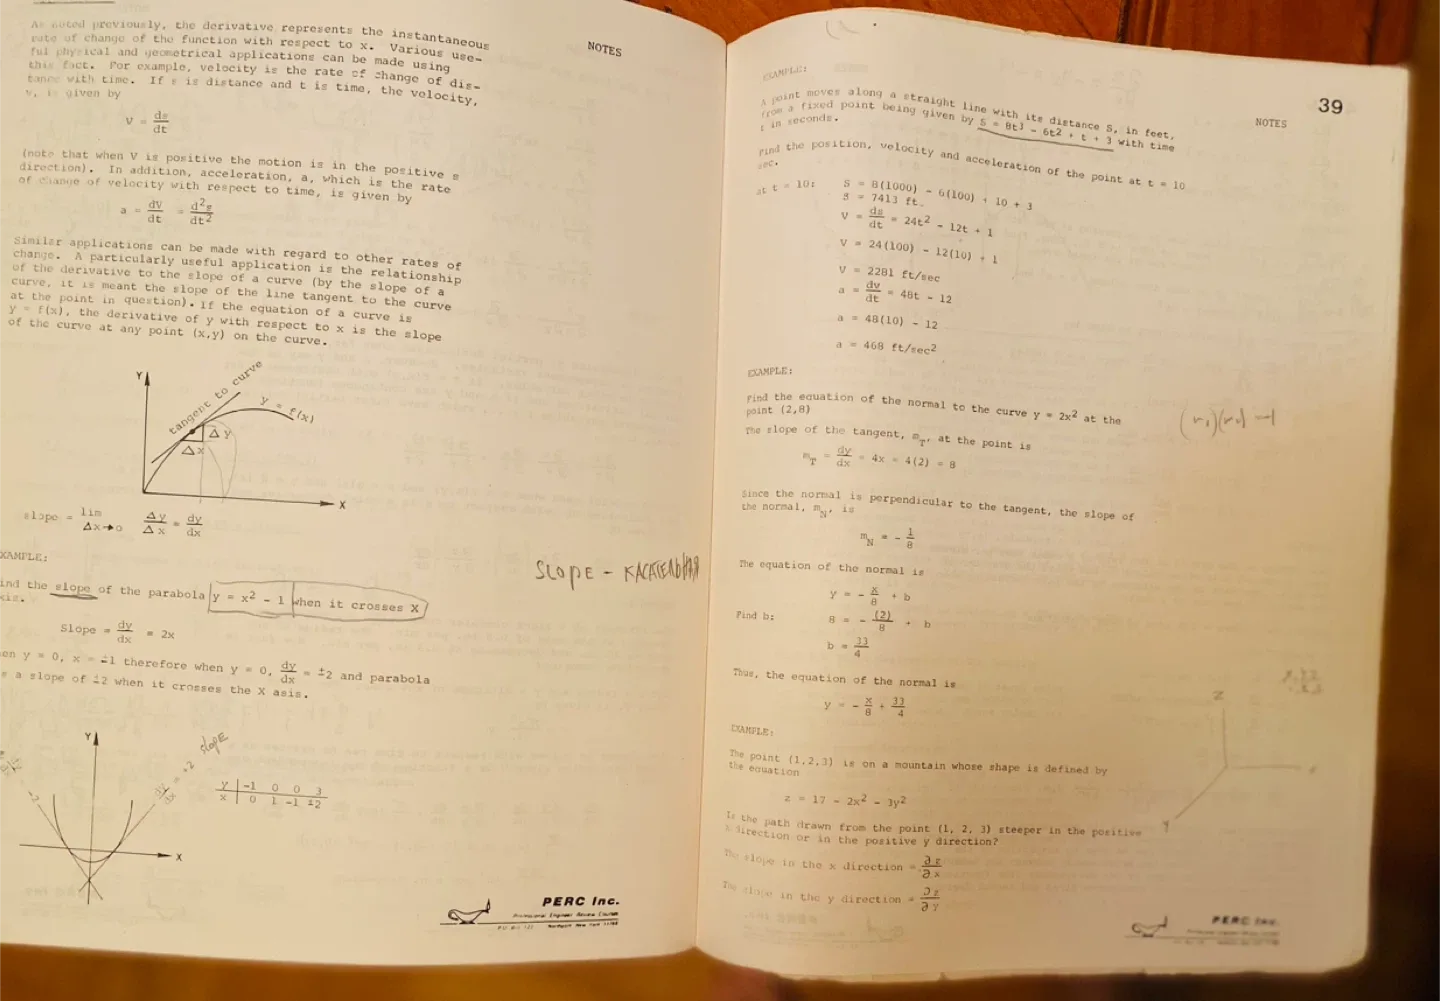 As noted previously, the derivative represents the instantaneous
rate of change of the function with respect to x. Various use-
ful physical and geometrical applications can be made using
this fact. For example, velocity is the rate of change of dis-
tance with time. If s is distance and t is time, the velocity,
v, is given by
NOTES
V = ds/dt
(note that when V is positive the motion is in the positive s
direction). In addition, acceleration, a, which is the rate
of change of velocity with respect to time, is given by
a = dV/dt = d²s/dt²
Similar applications can be made with regard to other rates of
change. A particularly useful application is the relationship
of the derivative to the slope of a curve (by the slope of a
curve, it is meant the slope of the line tangent to the curve
at the point in question). If the equation of a curve is
y = f(x), the derivative of y with respect to x is the slope
of the curve at any point (x,y) on the curve.
Y
tangent to curve
y = f(x)
Δy
Δx
X
slope = lim Δx→o Δy/Δx = dy/dx
XAMPLE:
SLOPE -
ind the slope of the parabola y = x² - 1 when it crosses X
xis.
Slope = dy/dx = 2x
en y = 0, x = ±1 therefore when y = 0, dy/dx = ±2 and parabola
s a slope of ±2 when it crosses the X asis.
Y
slope
dy/dx = +2
-2
y -1 0 0 3
x 0 1 -1 ±2
X
PERC Inc.
Professional Engineer Review Courses
39
EXAMPLE:
NOTES
A point moves along a straight line with its distance S, in feet,
from a fixed point being given by S = 8t³ - 6t² + t + 3 with time
t in seconds.
Find the position, velocity and acceleration of the point at t = 10
sec.
at t = 10: S = 8(1000) - 6(100) + 10 + 3
S = 7413 ft.
V = ds/dt = 24t² - 12t + 1
V = 24(100) - 12(10) + 1
V = 2281 ft/sec
a = dv/dt = 48t - 12
a = 48(10) - 12
a = 468 ft/sec²
EXAMPLE:
Find the equation of the normal to the curve y = 2x² at the
point (2,8)
The slope of the tangent, mT, at the point is
mT = dy/dx = 4x = 4(2) = 8
Since the normal is perpendicular to the tangent, the slope of
the normal, mN, is
mN = - 1/8
The equation of the normal is
y = - x/8 + b
Find b: 8 = - (2)/8 + b
b = 33/4
Thus, the equation of the normal is
y = - x/8 + 33/4
EXAMPLE:
The point (1,2,3) is on a mountain whose shape is defined by
the equation
z = 17 - 2x² - 3y²
Is the path drawn from the point (1, 2, 3) steeper in the positive
x direction or in the positive y direction?
The slope in the x direction = ∂z/∂x
The slope in the y direction = ∂z/∂y
Z
Y
PERC Inc.